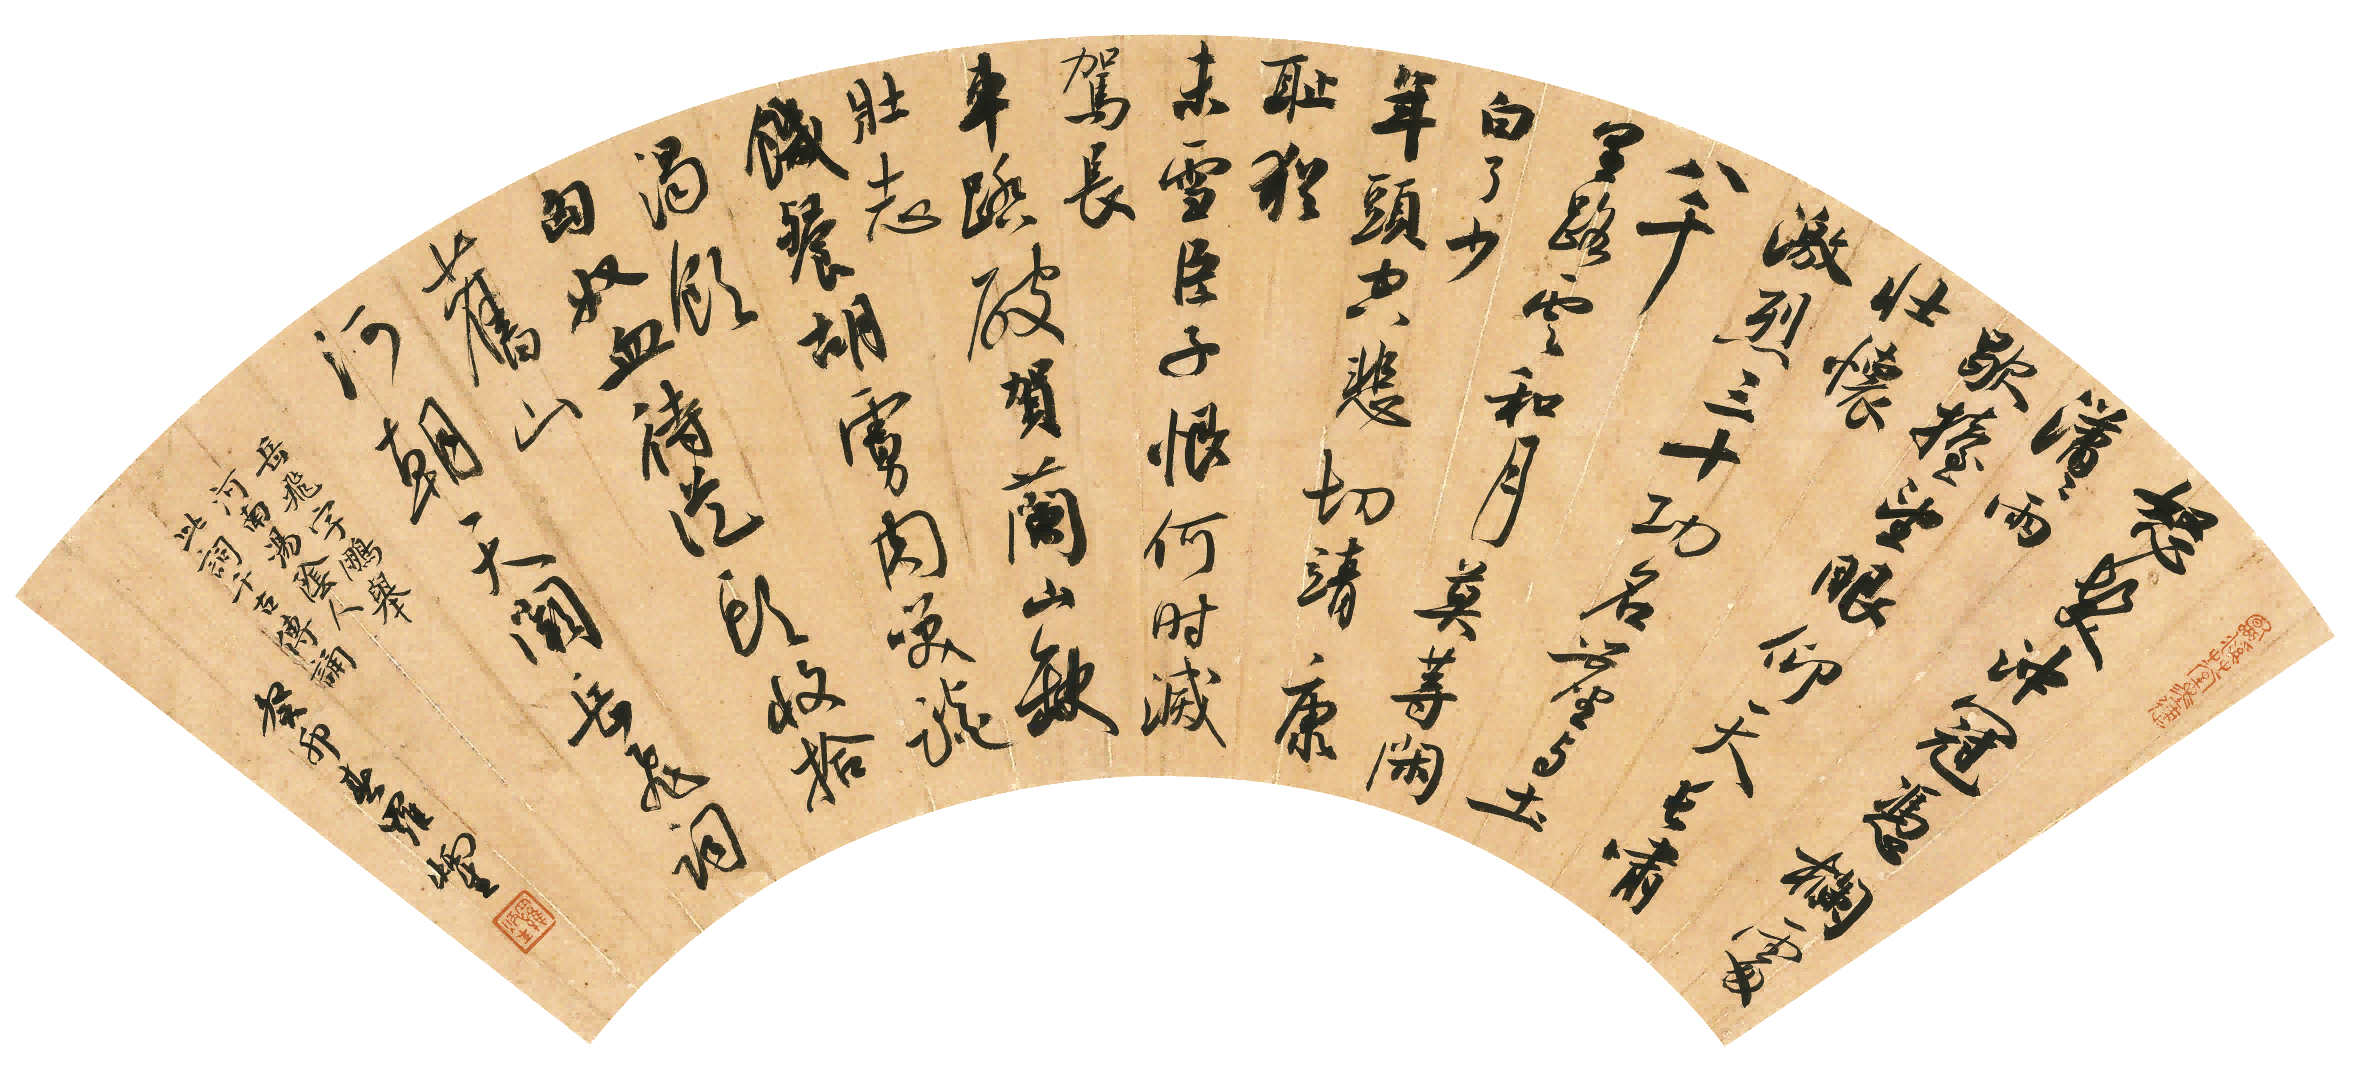 怒髮冲冠憑欄處
瀟瀟雨
歇擡望眼仰天长嘯
壯懷
激烈三十功名塵与土
八千
里路雲和月莫等閑
白了少
年頭空悲切靖康
耻猶
未雪臣子恨何时滅
駕長
車踏破賀蘭山缺
壯志
饑餐胡虜肉笑談
渴飲
匈奴血待從頭收拾
舊山
河朝天闕岳飛詞
岳飛字鵬舉
河南湯陰人
此詞千古傳誦
癸卯春羅